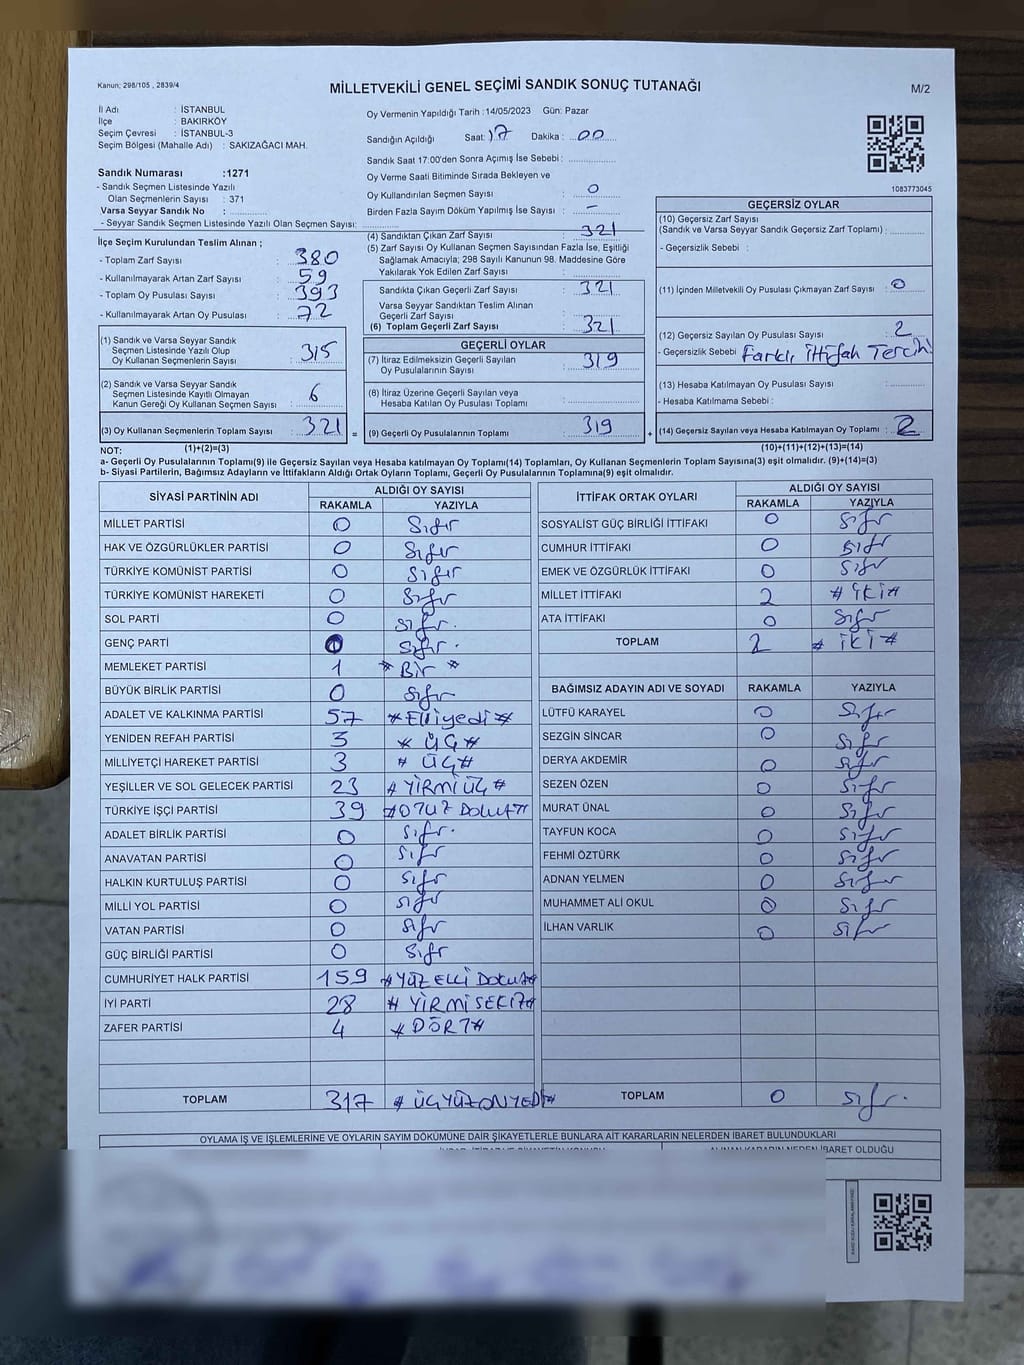 Kanun; 298/105 , 2839/4
MİLLETVEKİLİ GENEL SEÇİMİ SANDIK SONUÇ TUTANAĞI
M/2
İl Adı : İSTANBUL
İlçe : BAKIRKÖY
Seçim Çevresi : İSTANBUL-3
Seçim Bölgesi (Mahalle Adı) : SAKIZAĞACI MAH.
Sandık Numarası :1271
- Sandık Seçmen Listesinde Yazılı
Olan Seçmenlerin Sayısı : 371
Varsa Seyyar Sandık No :
- Seyyar Sandık Seçmen Listesinde Yazılı Olan Seçmen Sayısı:
Oy Vermenin Yapıldığı Tarih : 14/05/2023 Gün: Pazar
Sandığın Açıldığı Saat: 17 Dakika : 00
Sandık Saat 17:00'den Sonra Açımış İse Sebebi :
Oy Verme Saati Bitiminde Sırada Bekleyen ve
Oy Kullandırılan Seçmen Sayısı : 0
Birden Fazla Sayım Döküm Yapılmış İse Sayısı : -
1083773045
İlçe Seçim Kurulundan Teslim Alınan ;
- Toplam Zarf Sayısı : 380
- Kullanılmayarak Artan Zarf Sayısı : 59
- Toplam Oy Pusulası Sayısı : 393
- Kullanılmayarak Artan Oy Pusulası : 72
(1) Sandık ve Varsa Seyyar Sandık
Seçmen Listesinde Yazılı Olup
Oy Kullanan Seçmenlerin Sayısı : 315
(2) Sandık ve Varsa Seyyar Sandık
Seçmen Listesinde Kayıtlı Olmayan
Kanun Gereği Oy Kullanan Seçmen Sayısı : 6
(3) Oy Kullanan Seçmenlerin Toplam Sayısı : 321
(1)+(2)=(3)
(4) Sandıktan Çıkan Zarf Sayısı : 321
(5) Zarf Sayısı Oy Kullanan Seçmen Sayısından Fazla İse, Eşitliği
Sağlamak Amacıyla; 298 Sayılı Kanunun 98. Maddesine Göre
Yakılarak Yok Edilen Zarf Sayısı :
Sandıkta Çıkan Geçerli Zarf Sayısı : 321
Varsa Seyyar Sandıktan Teslim Alınan
Geçerli Zarf Sayısı :
(6) Toplam Geçerli Zarf Sayısı : 321
GEÇERLİ OYLAR
(7) İtiraz Edilmeksizin Geçerli Sayılan
Oy Pusulalarının Sayısı : 319
(8) İtiraz Üzerine Geçerli Sayılan veya
Hesaba Katılan Oy Pusulası Toplamı :
= (9) Geçerli Oy Pusulalarının Toplamı : 319 +
GEÇERSİZ OYLAR
(10) Geçersiz Zarf Sayısı
(Sandık ve Varsa Seyyar Sandık Geçersiz Zarf Toplamı) :
- Geçersizlik Sebebi :
(11) İçinden Milletvekili Oy Pusulası Çıkmayan Zarf Sayısı : 0
(12) Geçersiz Sayılan Oy Pusulası Sayısı : 2
- Geçersizlik Sebebi : Farklı ittifak Tercihi
(13) Hesaba Katılmayan Oy Pusulası Sayısı :
- Hesaba Katılmama Sebebi :
(14) Geçersiz Sayılan veya Hesaba Katılmayan Oy Toplamı : 2
(10)+(11)+(12)+(13)=(14)
NOT:
a- Geçerli Oy Pusulalarının Toplamı(9) ile Geçersiz Sayılan veya Hesaba katılmayan Oy Toplamı(14) Toplamları, Oy Kullanan Seçmenlerin Toplam Sayısına(3) eşit olmalıdır. (9)+(14)=(3)
b- Siyasi Partilerin, Bağımsız Adayların ve İttifakların Aldığı Ortak Oyların Toplamı, Geçerli Oy Pusulalarının Toplamına(9) eşit olmalıdır.
SİYASİ PARTİNİN ADI ALDIĞI OY SAYISI
RAKAMLA YAZIYLA
MİLLET PARTİSİ 0 Sıfır
HAK VE ÖZGÜRLÜKLER PARTİSİ 0 Sıfır
TÜRKİYE KOMÜNİST PARTİSİ 0 Sıfır
TÜRKİYE KOMÜNİST HAREKETİ 0 Sıfır
SOL PARTİ 0 Sıfır.
GENÇ PARTİ 0 Sıfır.
MEMLEKET PARTİSİ 1 * Bir *
BÜYÜK BİRLİK PARTİSİ 0 Sıfır
ADALET VE KALKINMA PARTİSİ 57 # Elliyedi #
YENİDEN REFAH PARTİSİ 3 * ÜÇ #
MİLLİYETÇİ HAREKET PARTİSİ 3 # ÜÇ #
YEŞİLLER VE SOL GELECEK PARTİSİ 23 # YİRMİ ÜÇ #
TÜRKİYE İŞÇİ PARTİSİ 39 # OTUZ DOKUZ #
ADALET BİRLİK PARTİSİ 0 Sıfır.
ANAVATAN PARTİSİ 0 Sıfır
HALKIN KURTULUŞ PARTİSİ 0 Sıfır
MİLLİ YOL PARTİSİ 0 Sıfır
VATAN PARTİSİ 0 Sıfır
GÜÇ BİRLİĞİ PARTİSİ 0 Sıfır
CUMHURİYET HALK PARTİSİ 159 # YÜZ ELLİ DOKUZ #
İYİ PARTİ 28 # YİRMİ SEKİZ #
ZAFER PARTİSİ 4 # DÖRT #
TOPLAM 317 # ÜÇYÜZONYEDİ #
İTTİFAK ORTAK OYLARI ALDIĞI OY SAYISI
RAKAMLA YAZIYLA
SOSYALİST GÜÇ BİRLİĞİ İTTİFAKI 0 Sıfır
CUMHUR İTTİFAKI 0 Sıfır
EMEK VE ÖZGÜRLÜK İTTİFAKI 0 Sıfır
MİLLET İTTİFAKI 2 # İKİ #
ATA İTTİFAKI 0 Sıfır
TOPLAM 2 # İKİ #
BAĞIMSIZ ADAYIN ADI VE SOYADI RAKAMLA YAZIYLA
LÜTFÜ KARAYEL 0 Sıfır
SEZGİN SİNCAR 0 Sıfır
DERYA AKDEMİR 0 Sıfır
SEZEN ÖZEN 0 Sıfır
MURAT ÜNAL 0 Sıfır
TAYFUN KOCA 0 Sıfır
FEHMİ ÖZTÜRK 0 Sıfır
ADNAN YELMEN 0 Sıfır
MUHAMMET ALİ OKUL 0 Sıfır
İLHAN VARLIK 0 Sıfır
TOPLAM 0 Sıfır.
OYLAMA İŞ VE İŞLEMLERİNE VE OYLARIN SAYIM DÖKÜMÜNE DAİR ŞİKAYETLERLE BUNLARA AİT KARARLARIN NELERDEN İBARET BULUNDUKLARI
ALINAN KARARIN NEDEN İBARET OLDUĞU